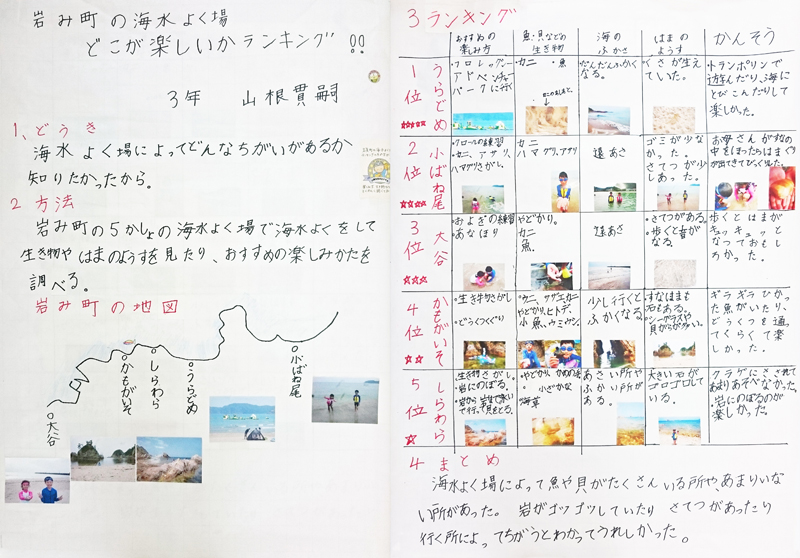 岩み町の海水よく場
どこが楽しいかランキング!!
3年 山根貫嗣
1、どうき
海水よく場によってどんなちがいがあるか
知りたかったから。
2 方法
岩み町の5かしょの海水よく場で海水よくをして
生き物やはまのようすを見たり、おすすめの楽しみかたを
調べる。
岩み町の地図
小ばね尾
うらどめ
しらわら
かもがいそ
大谷
3 ランキング
おすすめの楽しみ方
魚・貝などの生き物
海のふかさ
はまのようす
かんそう
1位 うらどめ
☆☆☆☆☆
・アドベンチャー
パークに行く
・カニ ・魚
だんだんふかく
なる。
くさが生え
ていた。
・トランポリンで
遊んだり、海に
とびこんだりして
楽しかった。
2位 小ばね尾
☆☆☆☆
・クロールの練習
・カニ、アサリ、
ハマグリさがし。
カニ
ハマグリ、アサリ
遠あさ
ゴミが少な
かった。
さてつが少
しあった。
お母さんがすなの
中をほったらはまぐり
が出てきてびっくりした。
3位 大谷
☆☆☆
・およぎの練習
・あなほり
やどかり。
カニ
魚。
遠あさ
・さてつがある。
・歩くと音が
なる。
歩くとはまが
キュッキュッと
なっておもし
ろかった。
4位 かもがいそ
☆☆
・生き物さがし
・どうくつくぐり
・ウニ、サザエ、カニ
やどかり、ヒトデ、
小魚、ウミウシ。
少し行くと
ふかくなる。
・すなはまも
石もある。
・シーグラスや
貝がらが多い。
ギラギラひかっ
た魚がいたり、
どうくつを通っ
てくらくて楽
しかった。
5位 しらわら
☆
・生き物さがし
・岩にのぼる。
・岩から岩まで泳い
で行って貝をとる。
やどかり、かめのて
・小ざかな
・海草
あさい所や
ふかい所が
ある。
大きい石が
ゴロゴロして
いる。
・クラゲにさされて
あまりあそべなかった。
・岩にのぼるのが
楽しかった。
4 まとめ
海水よく場によって魚や貝がたくさんいる所や、あまりいな
い所があった。岩がゴツゴツしていたりさてつがあったり
行く所によってちがうとわかってうれしかった。